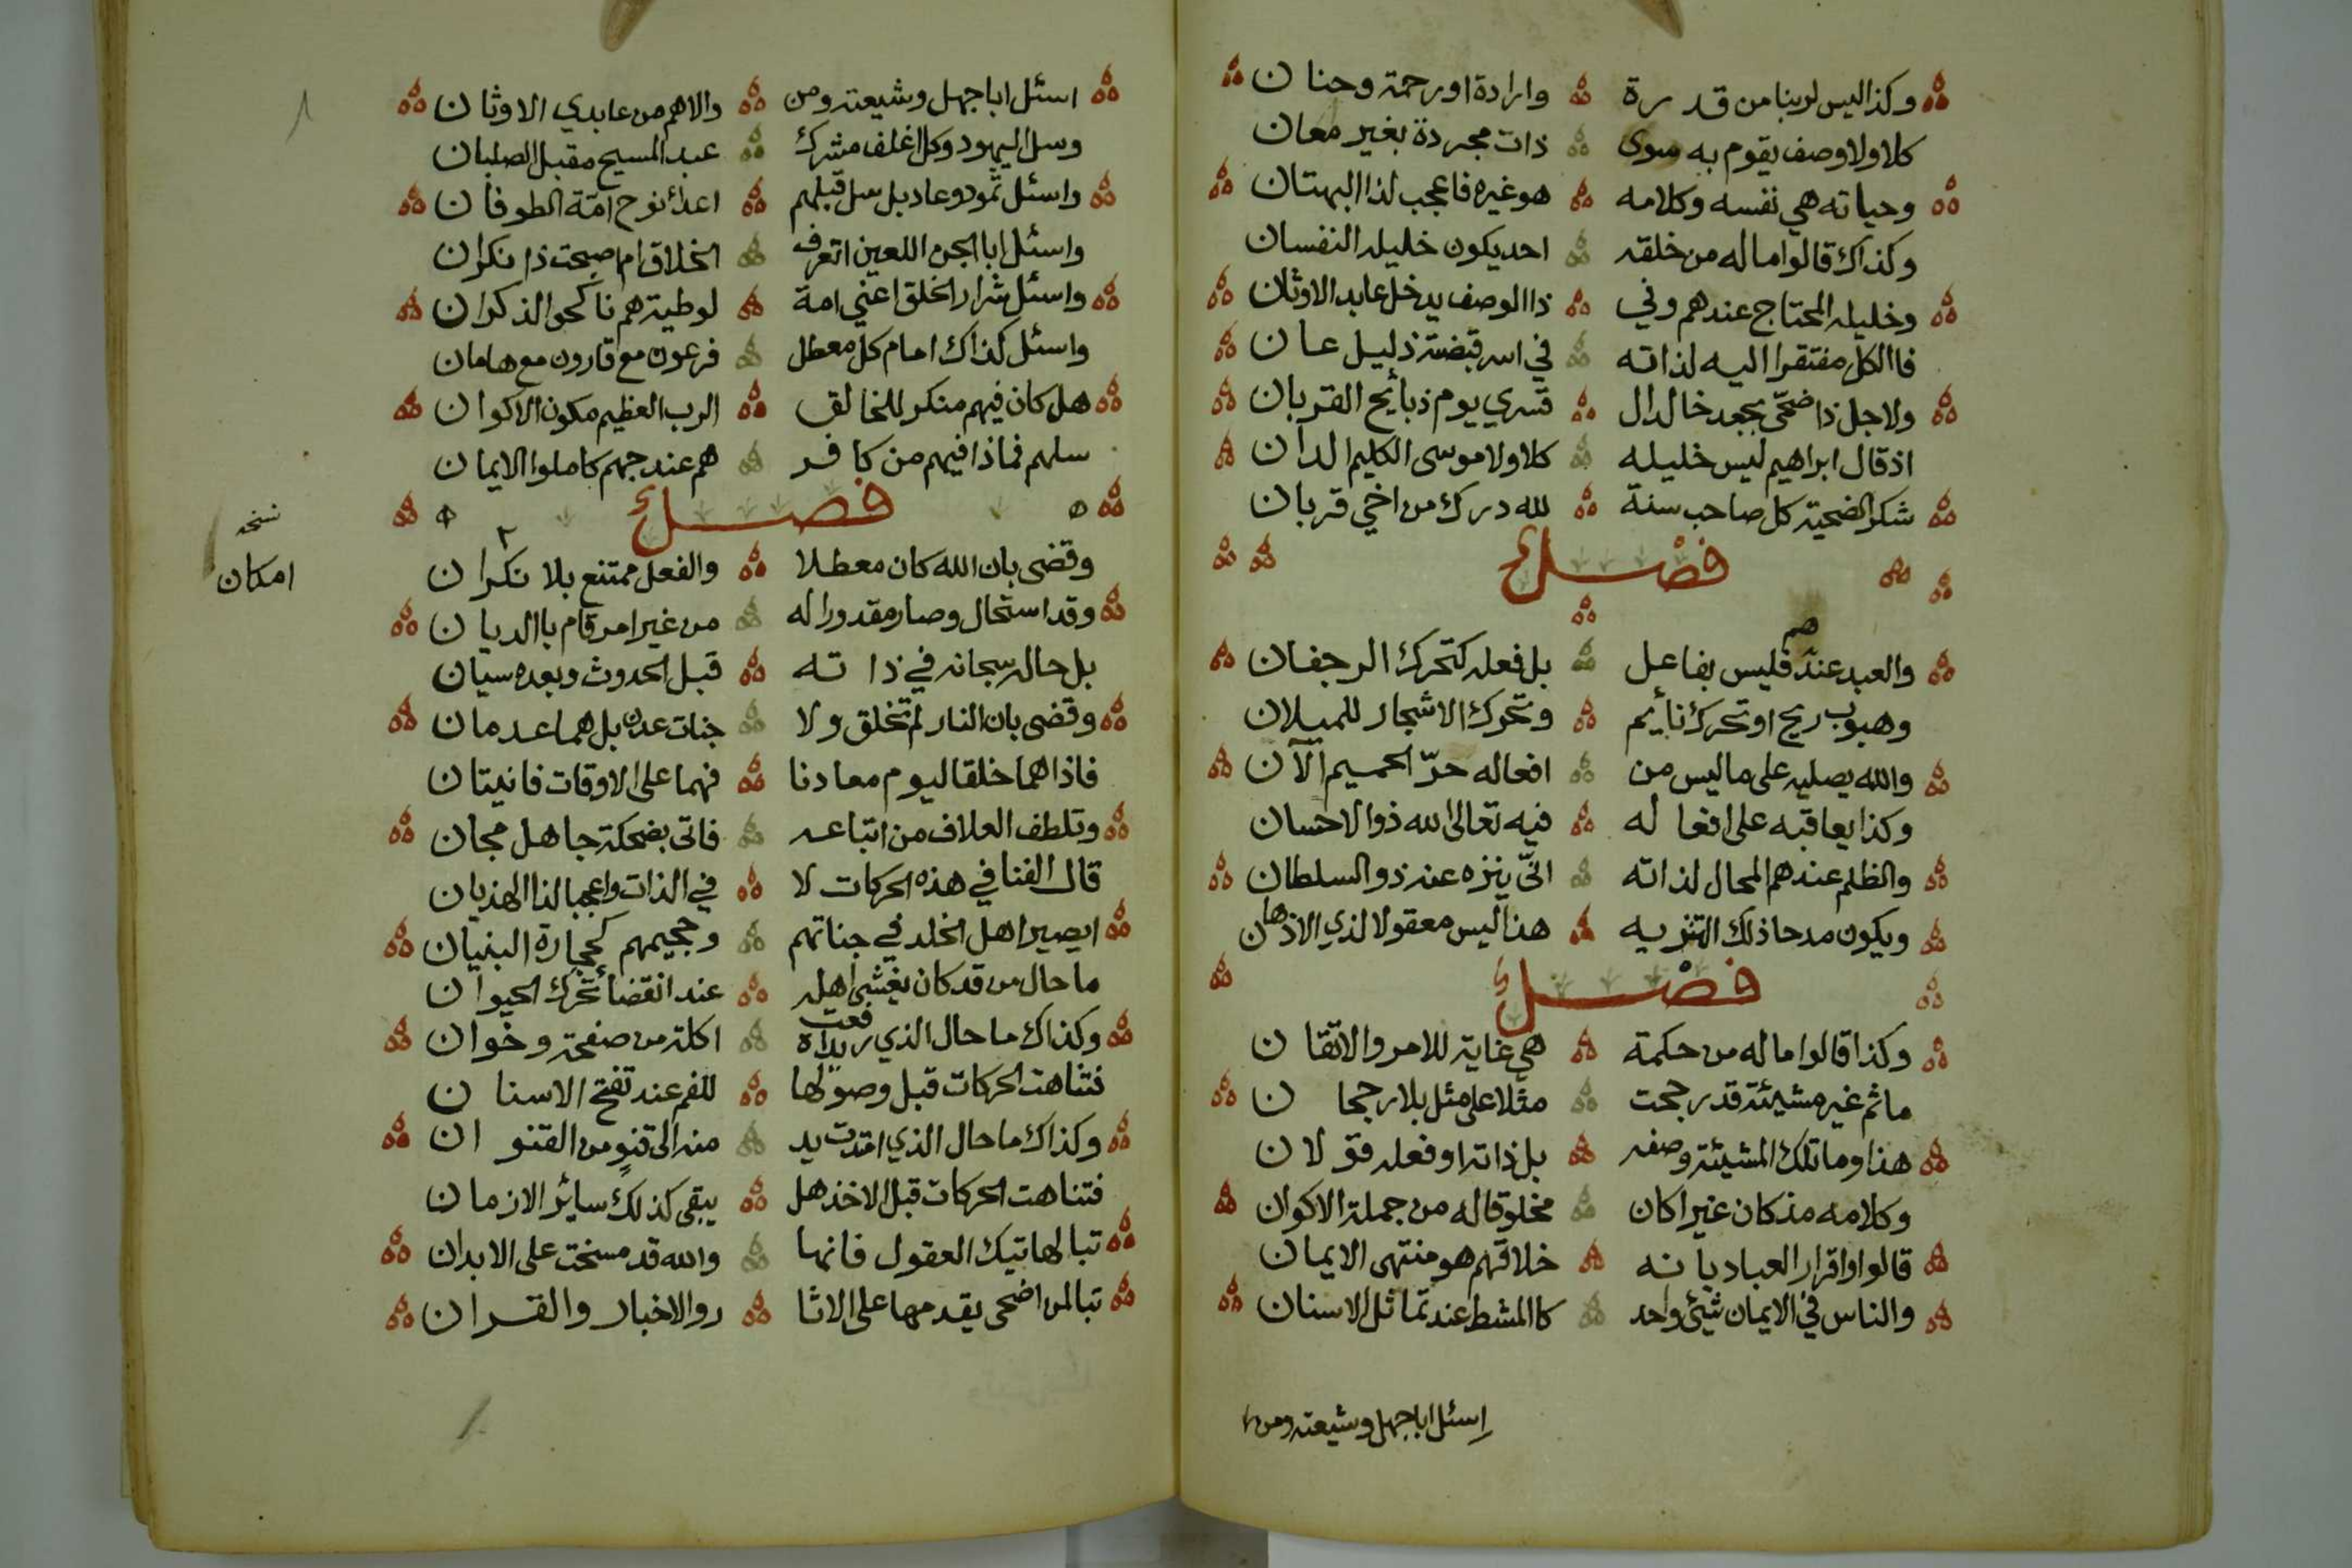 وكذا ليس لربنا من قدرة وارادة او رحمة وحنان
كلا ولا وصف يقوم به سوى ذات مجردة بغير معان
وحياته هي نفسه وكلامه هو غيره فاعجب لذا البهتان
وكذاك قالوا ماله من خلقه احد يكون خليله النفسان
وخليله المحتاج عندهم وفي ذا الوصف يدخل عابد الاوثان
فاالكل مفتقر اليه لذاته في اسر قبضته ذليل عان
ولاجل ذا ضحّى بجعد خالد ال قسري يوم ذبايح القربان
اذ قال ابراهيم ليس خليله كلا ولا موسى الكليم الدان
شكر الضحية كل صاحب سنة لله درك من اخي قربان
فصل
والعبد عندهم فليس بفاعل بل فعله كتحرك الرجفان
وهبوب ريح او تحرك نائم وتحرك الاشجار للميلان
والله يصليه على ما ليس من افعاله حرّ الحميم الآن
وكذا يعاقبه على افعاله فيه تعالى الله ذو الاحسان
والظلم عندهم المحال لذاته انّى ينزه عنه ذو السلطان
ويكون مدحا ذلك التنزيه هذا ليس معقولا لذي الاذهان
فصل
وكذا قالوا ماله من حكمة هي غاية للامر والاتقان
ما ثم غير مشيئة قد رجحت مثلا على مثل بلا رجحان
هذا وما تلك المشيئة وصفه بل ذاته او فعله قولان
وكلامه مذ كان غيرا كان مخلوقا له من جملة الاكوان
قالوا واقرار العباد بانه خلاقهم هو منتهى الايمان
والناس في الايمان شيئ واحد كاالمشط عند تماثل الاسنان
اسئل ابا جهل وشيعته ومن
اسئل ابا جهل وشيعته ومن والاهم من عابدي الاوثان
وسل اليهود وكل اغلف مشرك عبد المسيح مقبل الصلبان
واسئل ثمود وعاد بل سل قبلهم اعداء نوح امة الطوفان
واسئل ابا الجن اللعين اتعرف الخلاق ام اصبحت ذا نكران
واسئل شرار الخلق اعني امة لوطية هم ناكحوا الذكران
واسئل كذاك امام كل معطل فرعون مع قارون مع هامان
هل كان فيهم منكر للخالق الرب العظيم مكون الاكوان
سلهم فماذا فيهم من كافر هم عند جهم كاملوا الايمان
فصل
وقضى بان الله كان معطلا والفعل ممتنع بلا نكران
نسخه
امكان
وقد استحال وصار مقدورا له من غير امر قام باالديان
بل حاله سبحانه في ذاته قبل الحدوث وبعده سيان
وقضى بان النار لم تخلق ولا جنات عدن بل هما عدمان
فاذا هما خلقا ليوم معادنا فهما على الاوقات فانيتان
وتلطف العلاف من اتباعه فاتى بضحكة جاهل مجان
قال الفنا في هذه الحركات لا في الذات واعجبا لذا الهذيان
ايصير اهل الخلد في جناتهم وجحيمهم كحجارة البنيان
ما حال من قد كان يغشى اهله عند انقضأ تحرك الحيوان
وكذاك ما حال الذي رفعت يداه اكلة من صفحة وخوان
فتناهت الحركات قبل وصولها للفم عند تفتح الاسنان
وكذاك ما حال الذي امتدت يد منه الى قنو من القنوان
فتناهت الحركات قبل الاخذ هل يبقى كذلك ساير الازمان
تبا لهاتيك العقول فانها والله قد مسخت على الابدان
تبا لمن اضحى يقدمها على الاثا ر والاخبار والقران